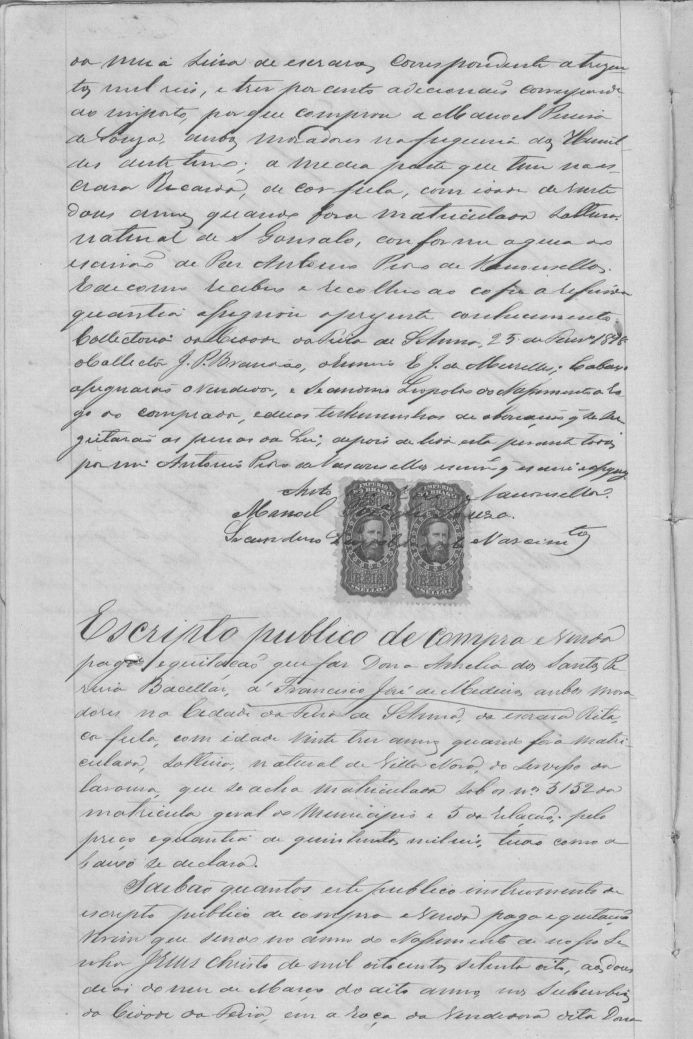 da meia siza de escrava, correspondente a trezen
tos mil reis, e tres por cento adicionaes correspond
ao imposto, porque comprou a Manoel Pereira
de Souza, ambos moradores na freguezia dos Humil
des deste termo; a media parte que tem na es-
crava Ricarda, de cor fula, com idade de vinte
dous annos quando fora matriculada solteira
natural de S Gonsalo, conforme a guia do
escrivão de Paz Antonio Pedro de Vasconsellos.
E de como recebeu e recolheu ao cofre a referida
quantia assignou o presente conhecimento.
Collectoria da Cidade da Feira de S. Anna, 25 de 1878
o Collector J. P. Brandão, o E. J. de Meirelles;
assignarão o Vendedor, e Secundino do Nascimento a Ro
go do comprador, e duas testemunhas de
as penas da Lei; depois de lido este perante todos
por mim Antonio Pedro de Vasconsellos escrivão q escrevi e assigney
Anto Vasconsellos.
Manoel Souza.
Secundino Nascimto
IMPERIO DO BRASIL IMPERIO DO BRASIL
REIS REIS
SELLO SELLO
Escripto publico de compra e Venda
paga e quitacão que faz Dona Amelia dos Santos Pe
reira Bacellar, á Francisco José de Medeiros ambos mora
dores na Cidade da Feira de S. Anna, da escrava Rita,
cor fula, com idade vinte tres annos quando foi matri-
culada, solteira, natural de Villa Nova, do serviço da
lavoura, que se acha matriculada sob os nos 5152 da
matricula geral do Municipio e 5 da relacão; pelo
preço e quantia de quinhentos mil reis, tudo como a
baixo se declara.
Saibão quantos este publico instrumento de
escripto publico de compra e Venda paga e quitacão
virem que sendo no anno do Nascimento de nosso Se
nhor Jesus Christo de mil oito centos setenta oito, aos dous
dias do mez de Março do dito anno, nos Suburbios
da Cidade da Feira, em a Roça da Vendedora dita Dona